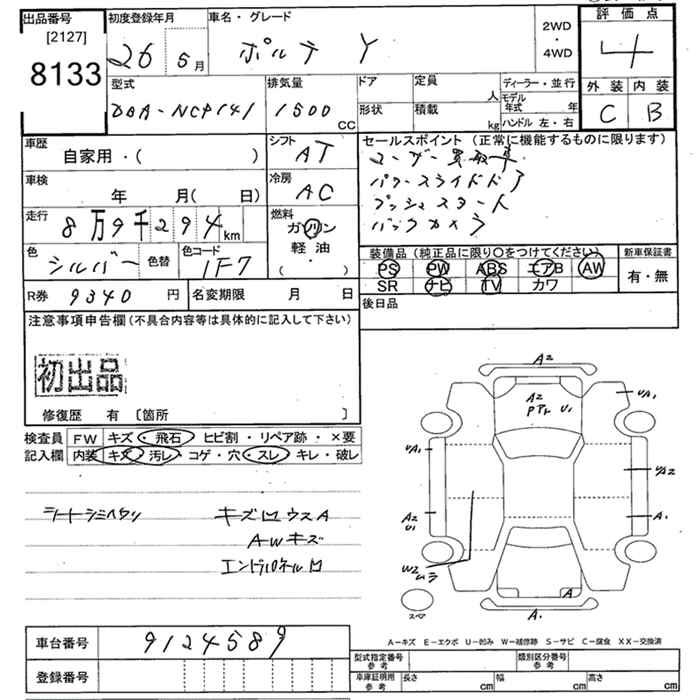 出品番号
[2127]
8133
初度登録年月
26 5月
車名・グレード
ポルテ Y
2WD
・
4WD
評価点
4
外装 内装
C B
型式
DBA-NCP141
排気量
1500 CC
ドア
形状
定員
人
積載
kg
ディーラー・並行
モデル年式 年
ハンドル 左・右
車歴
自家用・( )
シフト
AT
車検
年 月( 日)
冷房
AC
走行
8万9千294km
燃料
ガソリン
軽油
( ・ )
色
シルバー
色替
色コード
1F7
R券 9340 円
名変期限 月 日
セールスポイント (正常に機能するものに限ります)
ユーザー買取車
パワースライドドア
プッシュスタート
バックカメラ
装備品 (純正品に限り○をつけてください)
PS PW ABS エアB AW
SR ナビ TV カワ
新車保証書
有・無
後日品
注意事項申告欄(不具合内容等は具体的に記入して下さい)
初出品
修復歴 有 〔箇所 〕
検査員 FW キズ・飛石・ヒビ割・リペア跡・×要
記入欄 内装 キズ・汚レ・コゲ・穴・スレ・キレ・破レ
シートシミヘタリ
キズ凹ウスA
AWキズ
エンドパネル凹
A2
A2
PTレ U1
UA1
UA1
UA2
A2
U1
A1
W2
ムラ
A
スペア
A1
A-キズ E-エクボ U-凹み W-補修跡 S-サビ C-腐食 XX-交換済
車台番号 9124589
登録番号
型式指定番号
参考
類別区分番号
参考
車庫証明用
参考
長さ cm
幅 cm
高さ cm